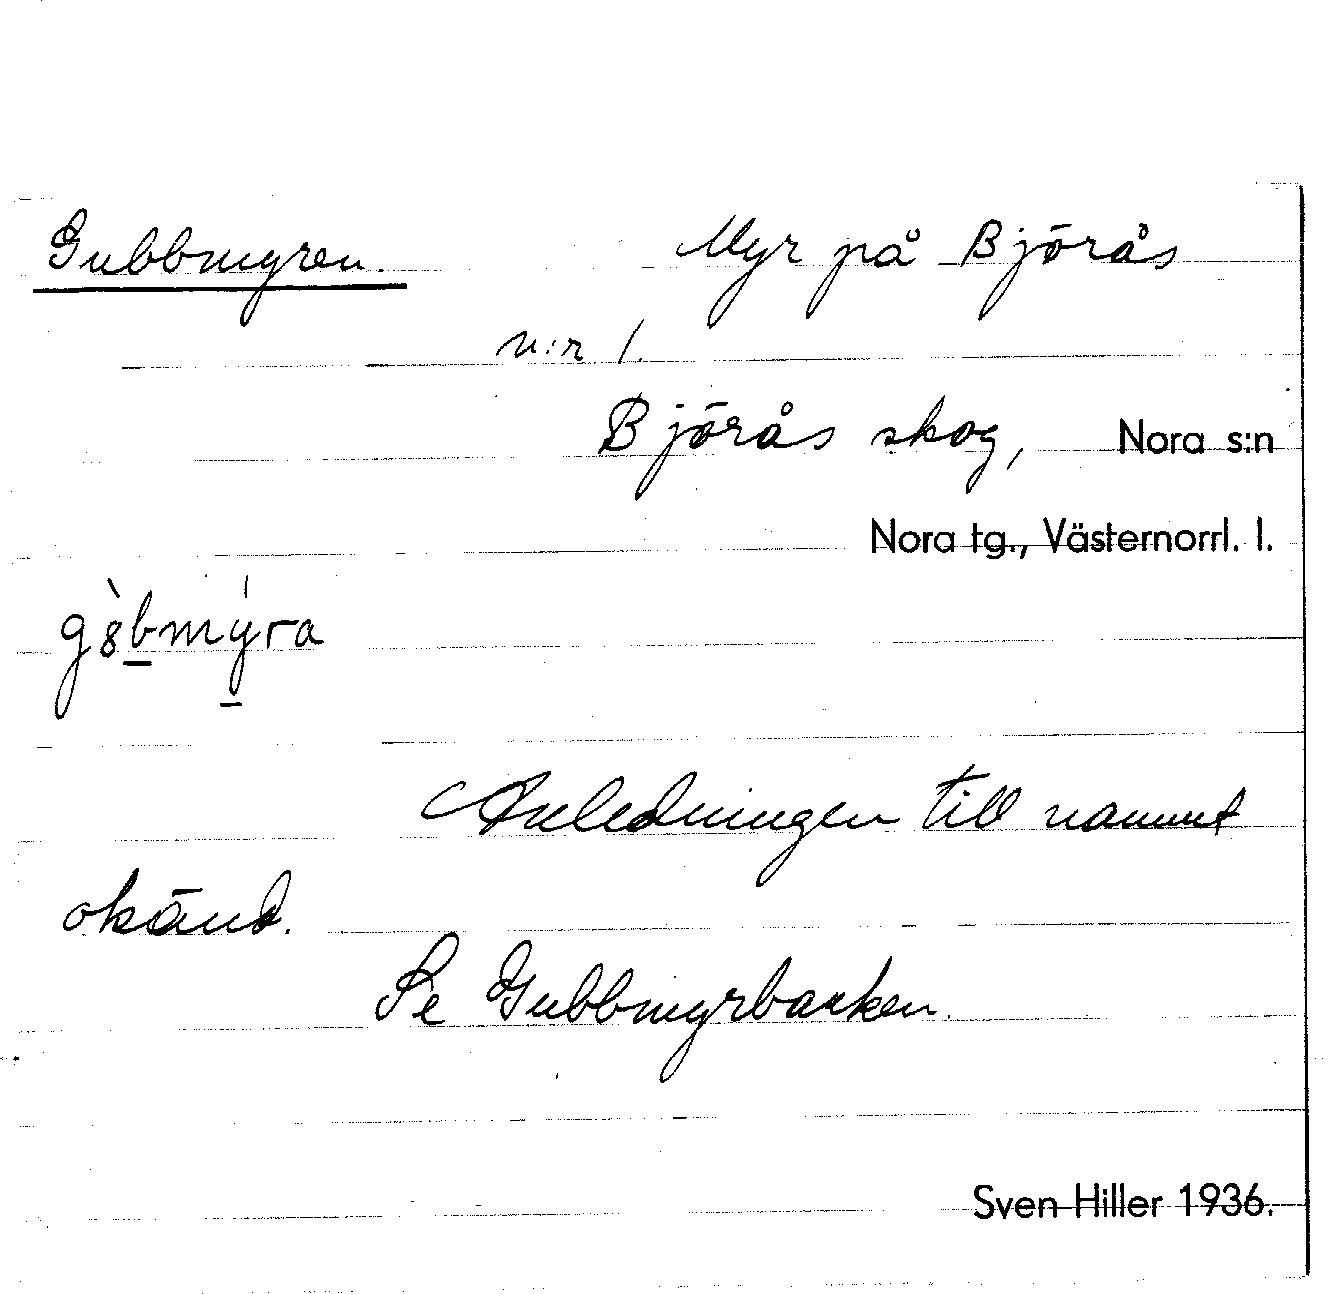 Gubbmyren. Myr på Björås
n:r 1.
Björås skog, Nora s:n
Nora tg., Västernorrl. l.
g8̀bmýra
Anledningen till namnet
okänd.
Se Gubbmyrbacken.
Sven Hiller 1936.